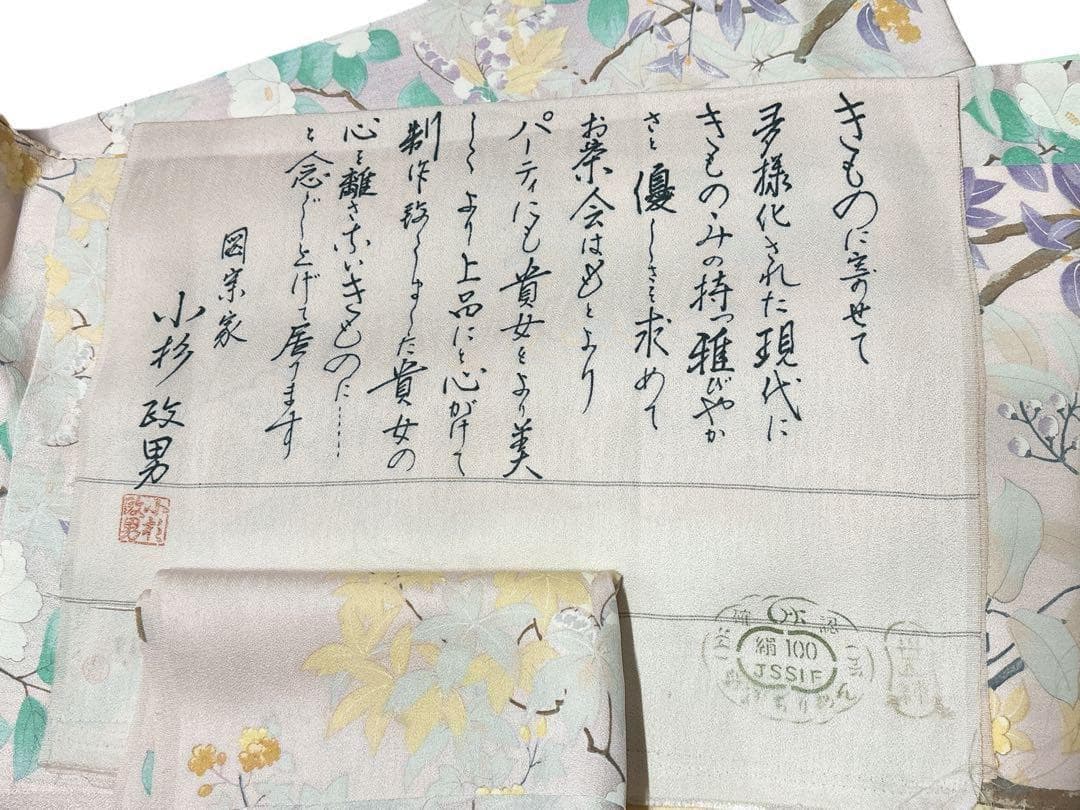 きものに寄せて
多様化された現代に
きもののみの持つ雅びやか
さと優しさを求めて
お茶会はもとより
パーティにも貴女をより美
しく より上品にと心がけて
制作致しました貴女の
心を離さないきものに……
と念じ上げて居ります
図案家
小杉 政男
小杉
政男
確 認
絹 100
JSSIF
ちりめん